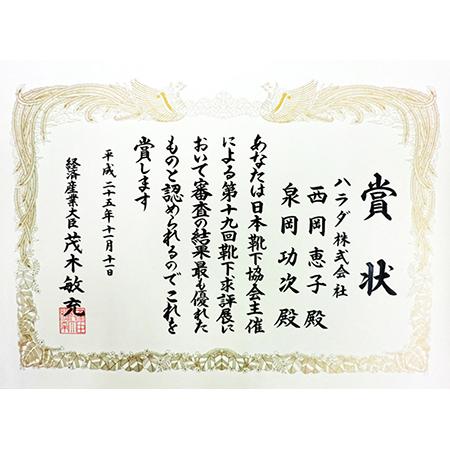 賞状
ハラダ株式会社
西岡恵子殿
泉岡功次殿
あなたは日本靴下協会主催
による第十九回靴下求評展に
おいて審査の結果最も優れた
ものと認められるのでこれを
賞します
平成二十五年十一月十一日
経済産業大臣 茂木敏充